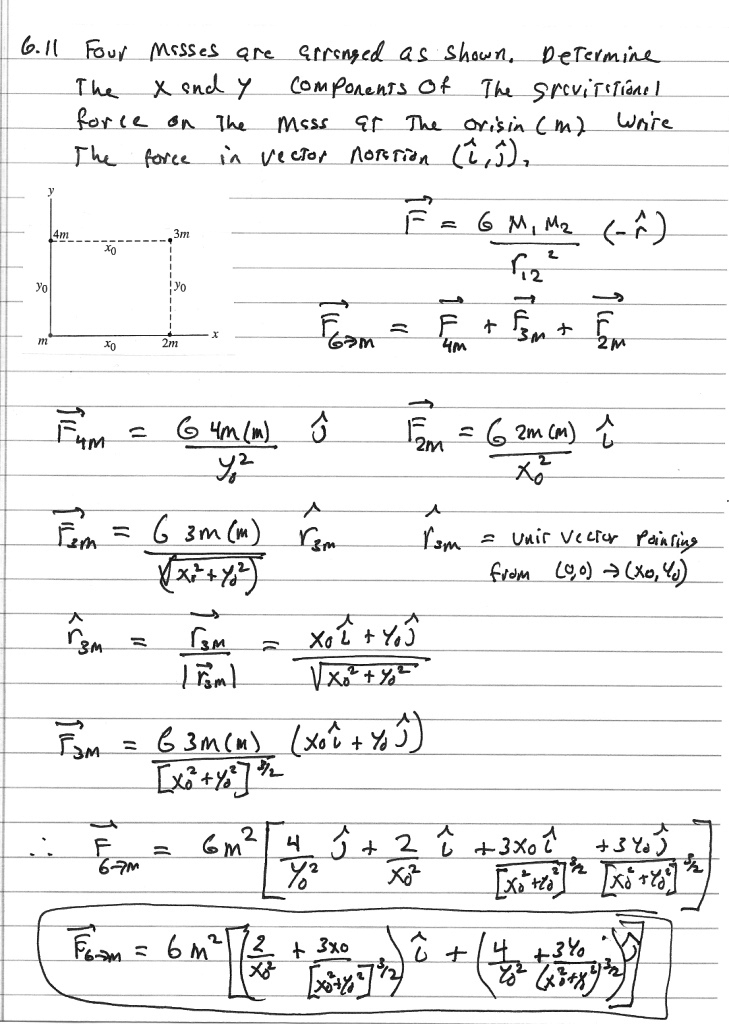 6.11 Four masses are arranged as shown. Determine
The x and y components of The gravitational
force on The mass at The origin (m) Write
The force in vector notation (î, ĵ),
y
4m
3m
x₀
y₀
y₀
m
x₀
2m
x
F⃗ = G M₁ M₂ / r₁₂² (-r̂)
F⃗_G→m = F⃗_4m + F⃗_3m + F⃗_2m
F⃗_4m = G 4m(m) / y₀² ĵ
F⃗_2m = G 2m(m) / x₀² î
F⃗_3m = G 3m(m) / √(x₀² + y₀²) r̂_3m
r̂_3m = unit vector pointing
from (0,0) → (x₀, y₀)
r̂_3m = r⃗_3m / |r⃗_3m| = x₀ î + y₀ ĵ / √x₀² + y₀²
F⃗_3m = G 3m(m) / [x₀² + y₀²]^3/2 (x₀ î + y₀ ĵ)
∴ F⃗_G→m = G m² [4 / y₀² ĵ + 2 / x₀² î + 3x₀ î / [x₀² + y₀²]^3/2 + 3y₀ ĵ / [x₀² + y₀²]^3/2]
F⃗_G→m = G m² [(2 / x₀² + 3x₀ / [x₀² + y₀²]^3/2) î + (4 / y₀² + 3y₀ / (x₀² + y²)^3/2) ĵ]